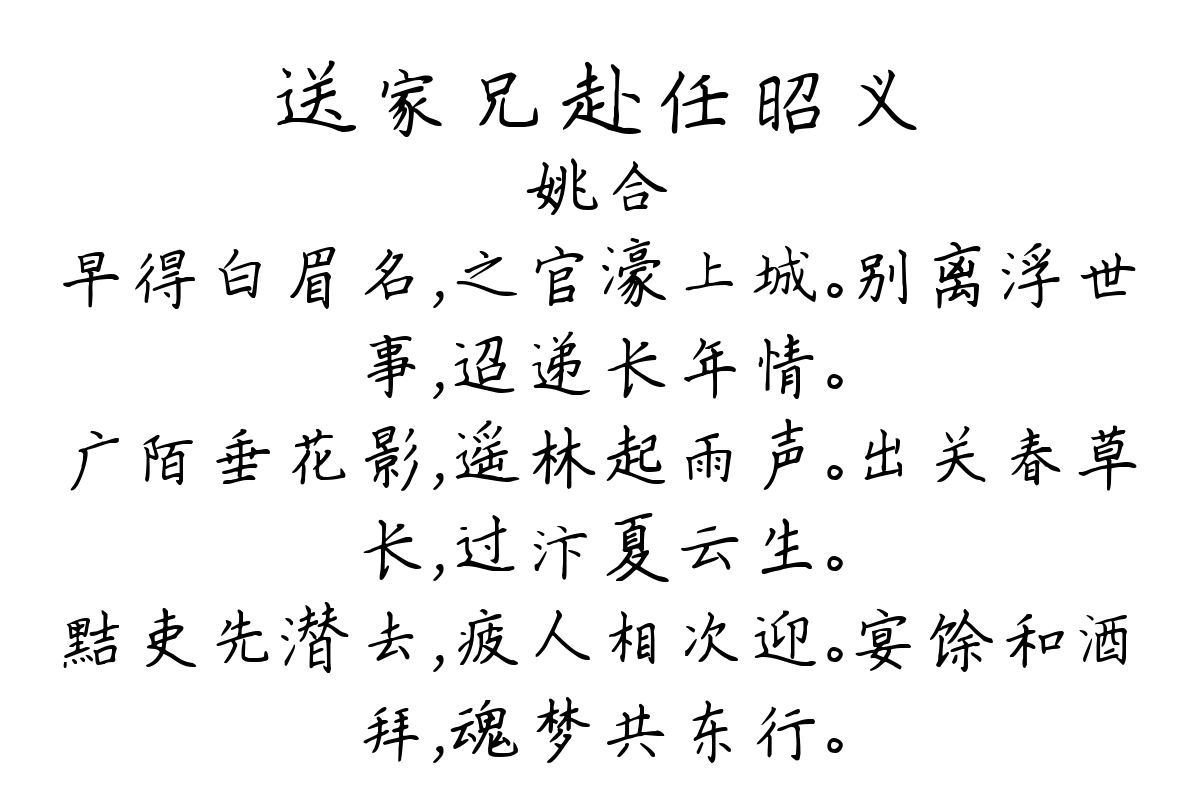 送家兄赴任昭义
姚合
早得白眉名,之官濠上城。别离浮世
事,迢递长年情。
广陌垂花影,遥林起雨声。出关春草
长,过汴夏云生。
黠吏先潜去,疲人相次迎。宴馀和酒
拜,魂梦共东行。